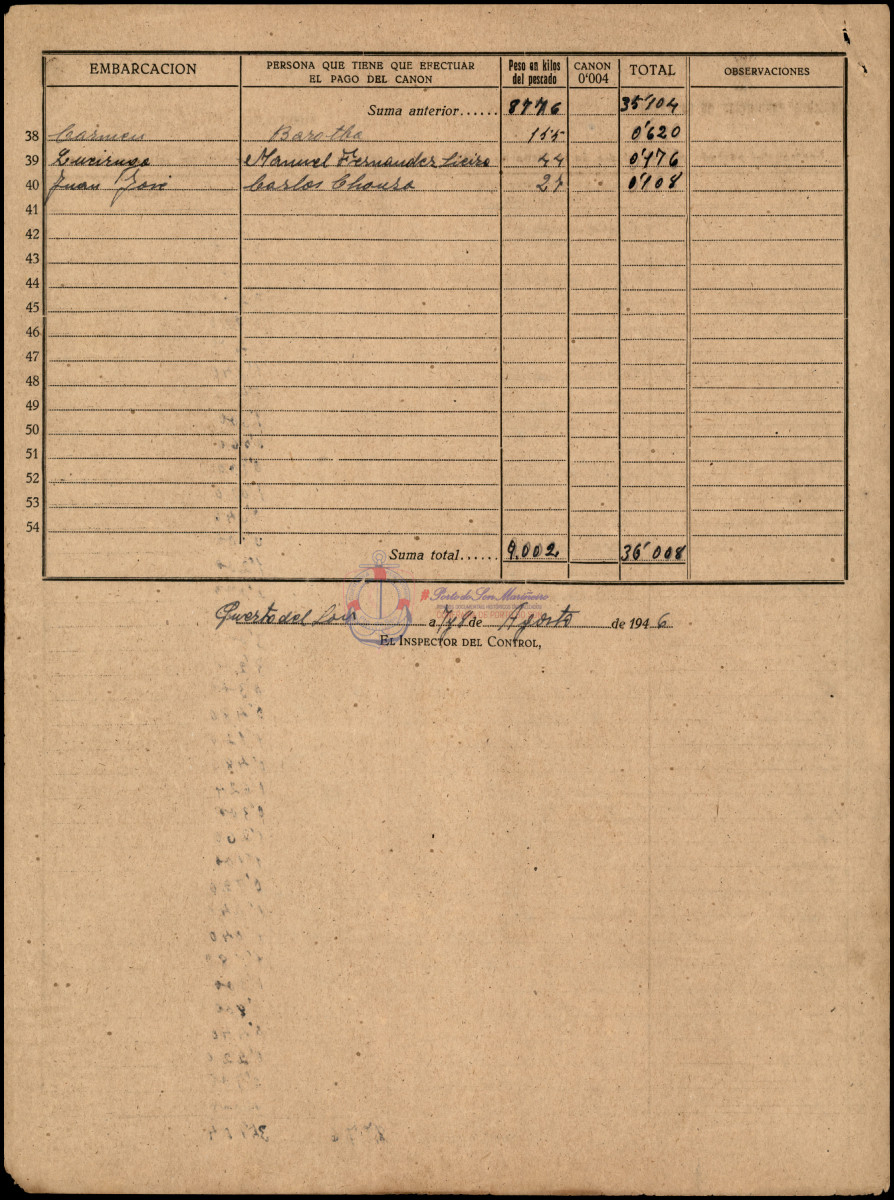 EMBARCACION PERSONA QUE TIENE QUE EFECTUAR EL PAGO DEL CANON Peso en kilos del pescado CANON 0'004 TOTAL OBSERVACIONES
Suma anterior...... 8776 35'104
38 Carmen 155 0'620
39 Manuel Fernandez Lieira 44 0'176
40 Juan José Carlos Chouza 27 0'108
41
42
43
44
45
46
47
48
49
50
51
52
53
54
Suma total...... 9.002 36'008
Porto do Son Mariñeiro
Puerto del Son a 7y8 de Agosto de 1946
EL INSPECTOR DEL CONTROL,